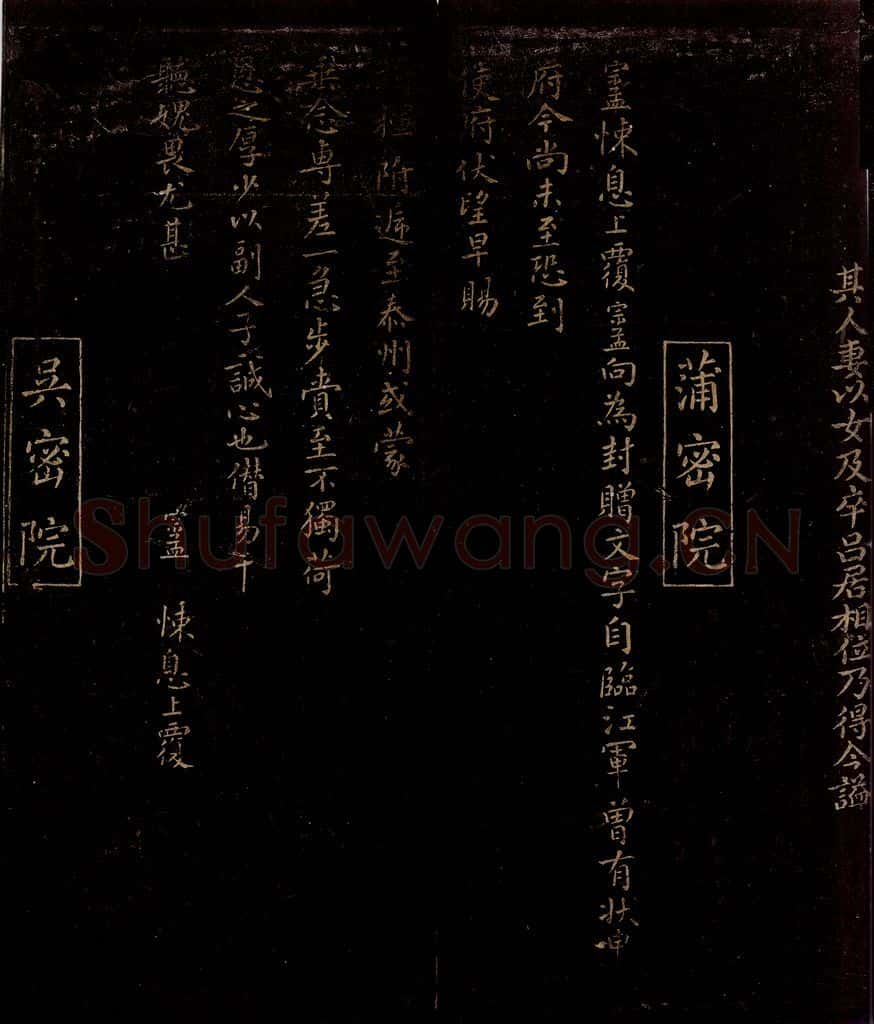 其人妻以女及卒吕居相位乃得今謚
蒲密院
宗孟悚息上覆宗孟向為封贈文字自臨江軍曾有狀申
府今尚未至恐到
使府伏望早賜
附遞至泰州或蒙
垂念專差一急步賫至不獨荷
恩之厚少以副人子誠心也僭易干
聽媿畏尤甚
宗孟 悚息上覆
吳密院
Shufawang.CN